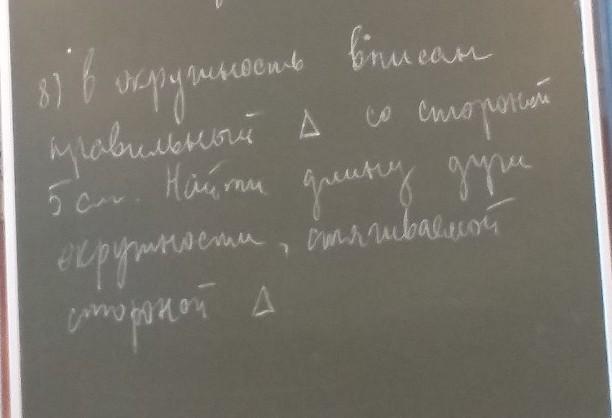 8) В окружность вписан
правильный Δ со стороной
5 см. Найти длину дуги
окружности, стягиваемой
стороной Δ